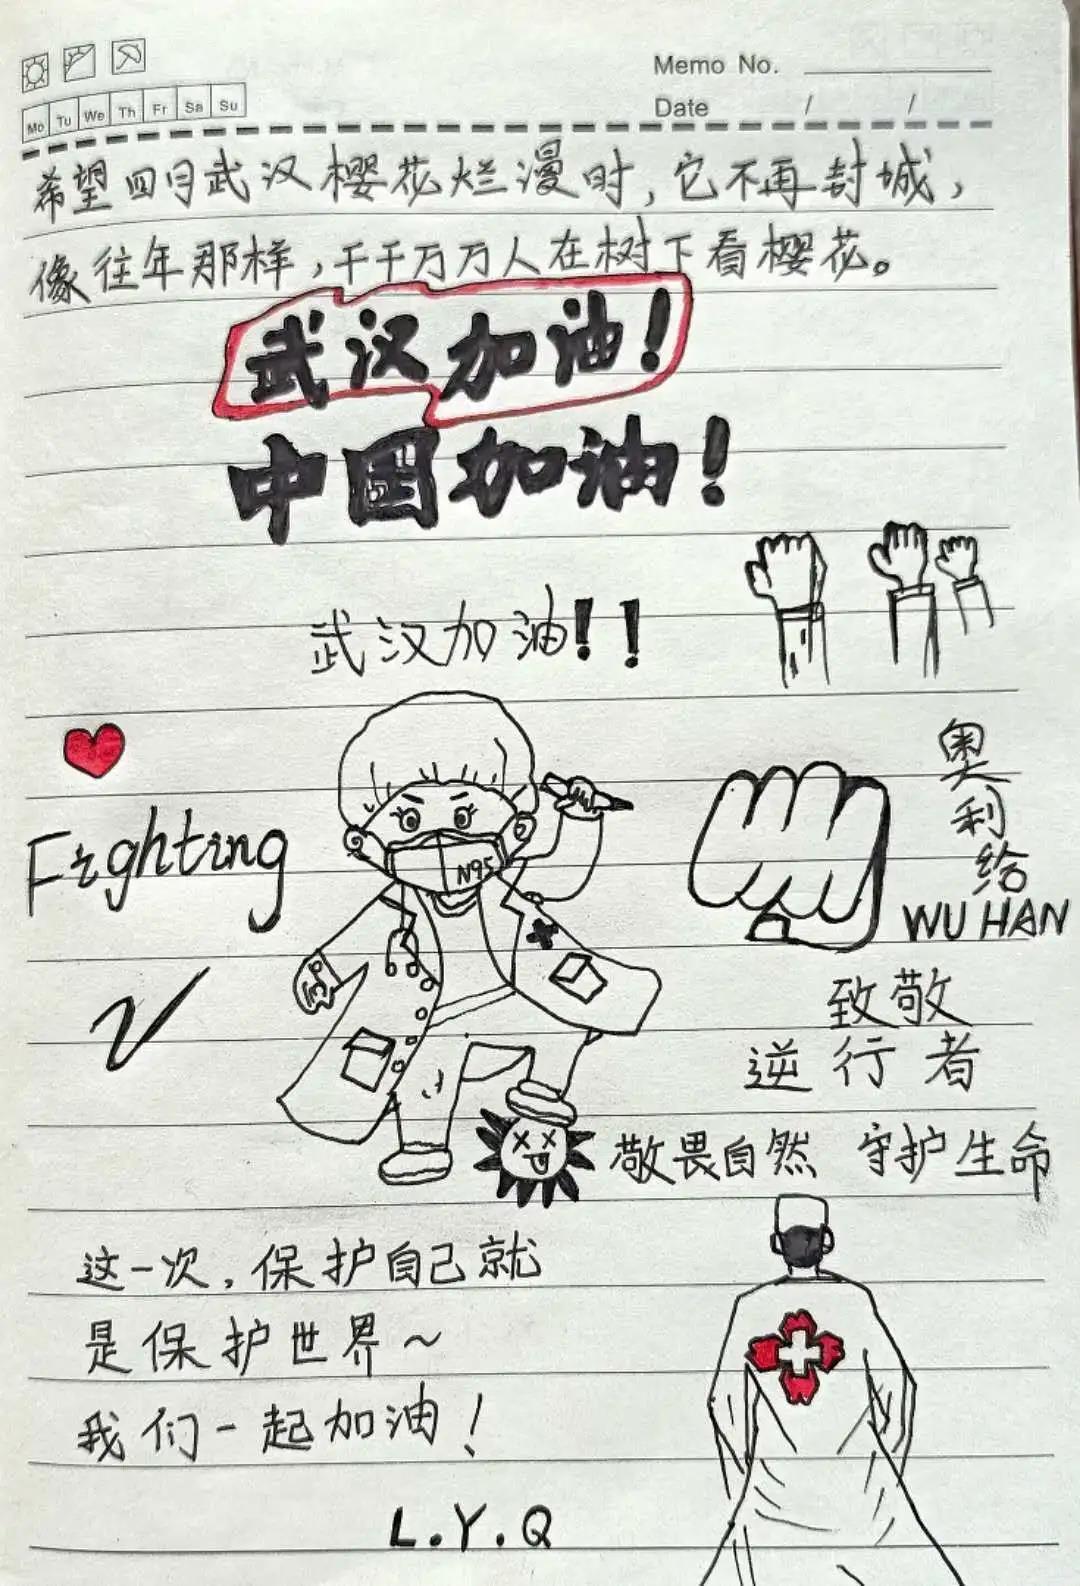 Memo No.
Mo Tu We Th Fr Sa Su
Date / /
希望四月武汉樱花烂漫时,它不再封城,
像往年那样,千千万万人在树下看樱花。
武汉加油!
中国加油!
武汉加油!!
奥
利
给
WU HAN
Fighting
N95
致敬
逆行者
敬畏自然 守护生命
这一次,保护自己就
是保护世界~
我们一起加油!
L.Y.Q